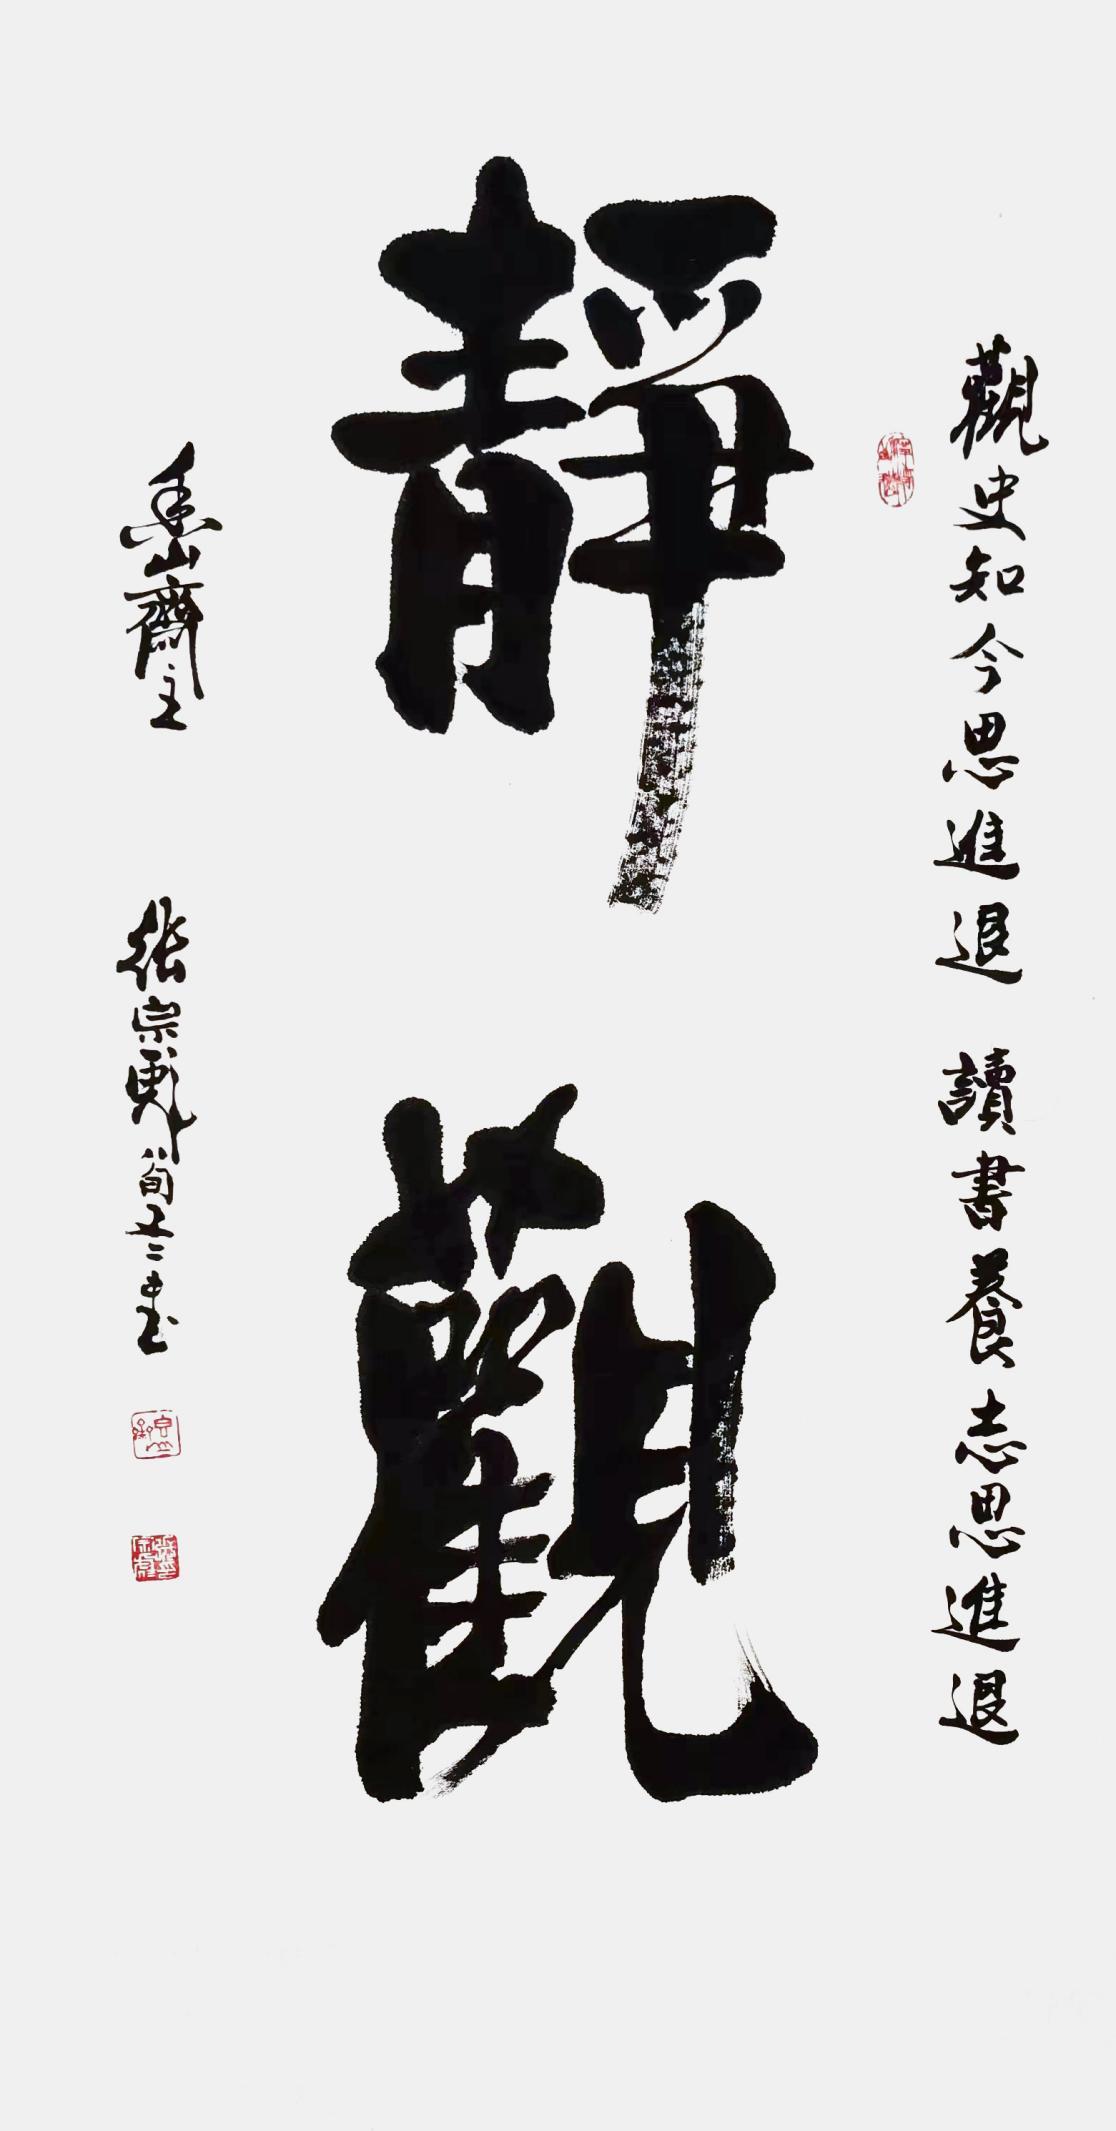 觀史知今思進退 讀書養志思進退
靜觀
山齋主
張宗彪 八旬又二書